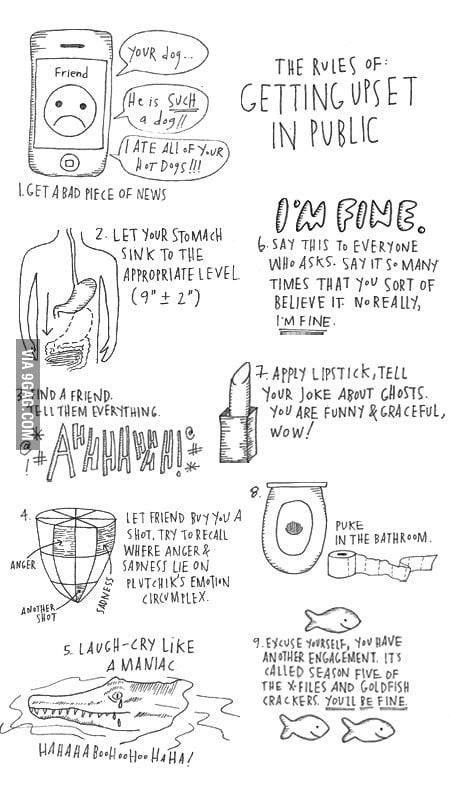 THE RULES OF:
GETTING UPSET
IN PUBLIC
Friend
YOUR dog...
He is SUCH
a dog!!
I ATE ALL OF YOUR
HOT DOGS!!!
1. GET A BAD PIECE OF NEWS
2. LET YOUR STOMACH
SINK TO THE
APPROPRIATE LEVEL
(9" ± 2")
3. FIND A FRIEND.
TELL THEM EVERYTHING.
@!#*AHHHHHHH!@#*
4. LET FRIEND BUY YOU A
SHOT. TRY TO RECALL
WHERE ANGER &
SADNESS LIE ON
PLUTCHIK'S EMOTION
CIRCUMPLEX.
ANGER
ANOTHER
SHOT
SADNESS
5. LAUGH-CRY LIKE
A MANIAC
HAHAHA BooHooHoo HaHa!
I'M FINE.
6. SAY THIS TO EVERYONE
WHO ASKS. SAY IT SO MANY
TIMES THAT YOU SORT OF
BELIEVE IT. NO REALLY,
I'M FINE.
7. APPLY LIPSTICK, TELL
YOUR JOKE ABOUT GHOSTS.
YOU ARE FUNNY & GRACEFUL,
WOW!
8.
PUKE
IN THE BATHROOM.
9. EXCUSE YOURSELF, YOU HAVE
ANOTHER ENGAGEMENT. IT'S
CALLED SEASON FIVE OF
THE X-FILES AND GOLDFISH
CRACKERS. YOU'LL BE FINE.
VIA 9GAG.COM